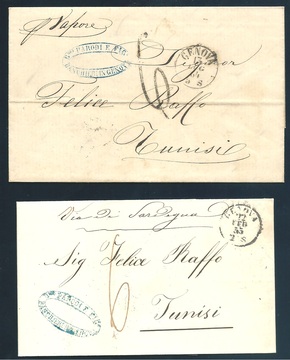 p. Vapore
GENOVA
Signor
Felice Raffo
Tunisi
Via di Sardegna
GENOVA
22
FEB
55
2 S
Sig Felice Raffo
6
Tunisi